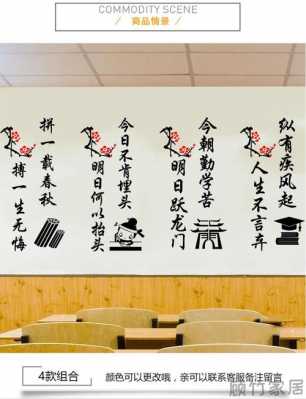 COMMODITY SCENE
商品情景
拼一载春秋
搏一生无悔
今日不肯埋头
明日何以抬头
今朝勤学苦
明日跃龙门
纵有疾风起
人生不言弃
4款组合
颜色可以更改哦，亲可以联系客服备注留言
顾竹家居